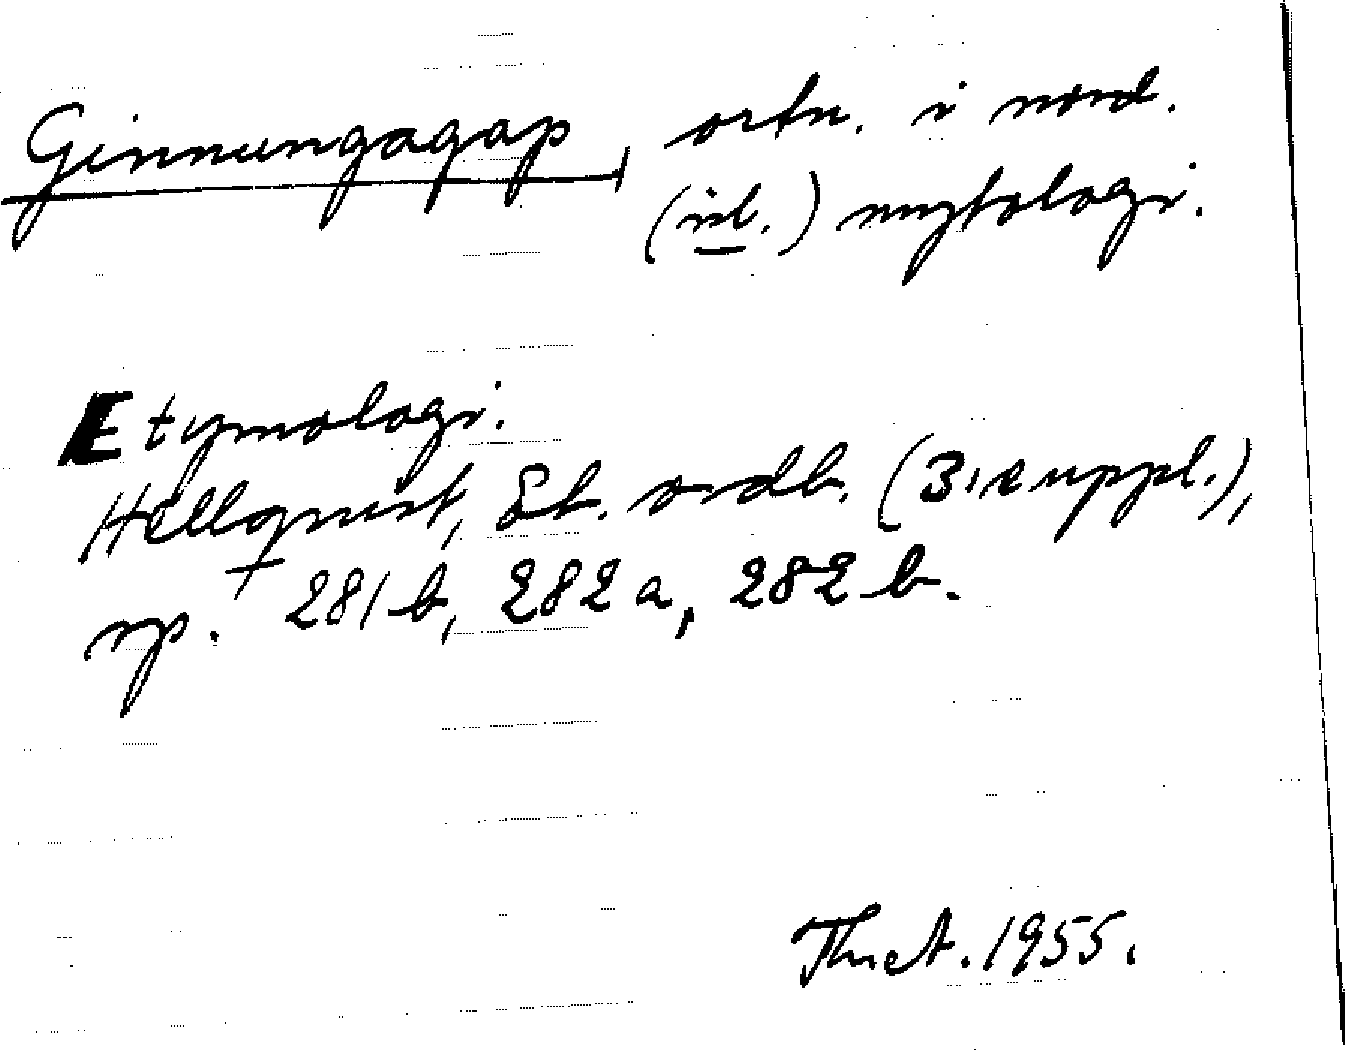 Ginnungagap, ortn. i nord.
(isl.) mytologi.
Etymologi.
Hellquist, Et. ordb. (3: e uppl.),
sp. 281 b, 282 a, 282 b.
1955.